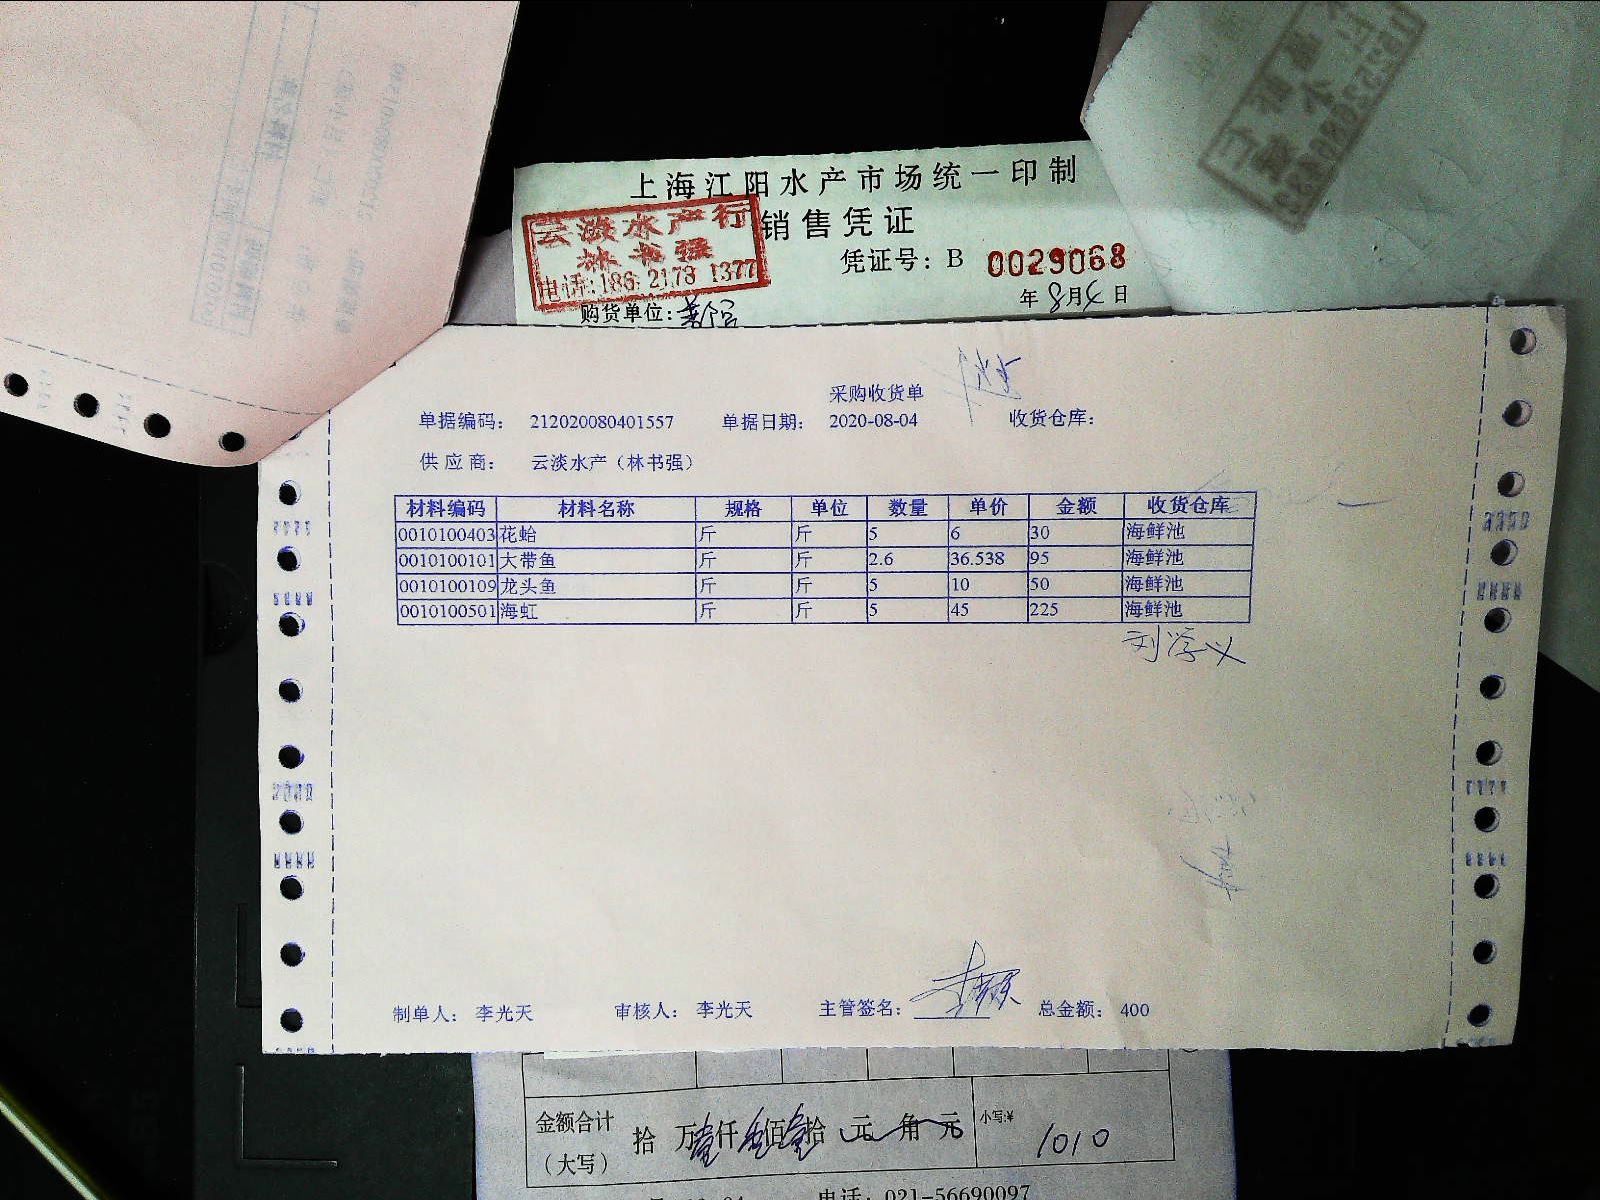 上海江阳水产市场统一印制
销售凭证
云淡水产行
林书强
电话:186 2173 1377
凭证号：B 0029068
年8月4日
购货单位：
采购收货单
单据编码： 212020080401557 单据日期： 2020-08-04 收货仓库：
供应商： 云淡水产（林书强）
材料编码 材料名称 规格 单位 数量 单价 金额 收货仓库
0010100403 花蛤 斤 斤 5 6 30 海鲜池
0010100101 大带鱼 斤 斤 2.6 36.538 95 海鲜池
0010100109 龙头鱼 斤 斤 5 10 50 海鲜池
0010100501 海虹 斤 斤 5 45 225 海鲜池
刘学义
制单人： 李光天 审核人： 李光天 主管签名： 总金额： 400
金额合计
（大写）
拾 万壹仟 佰壹拾 元 角 元 小写:¥ 1010
电话：021-56690097